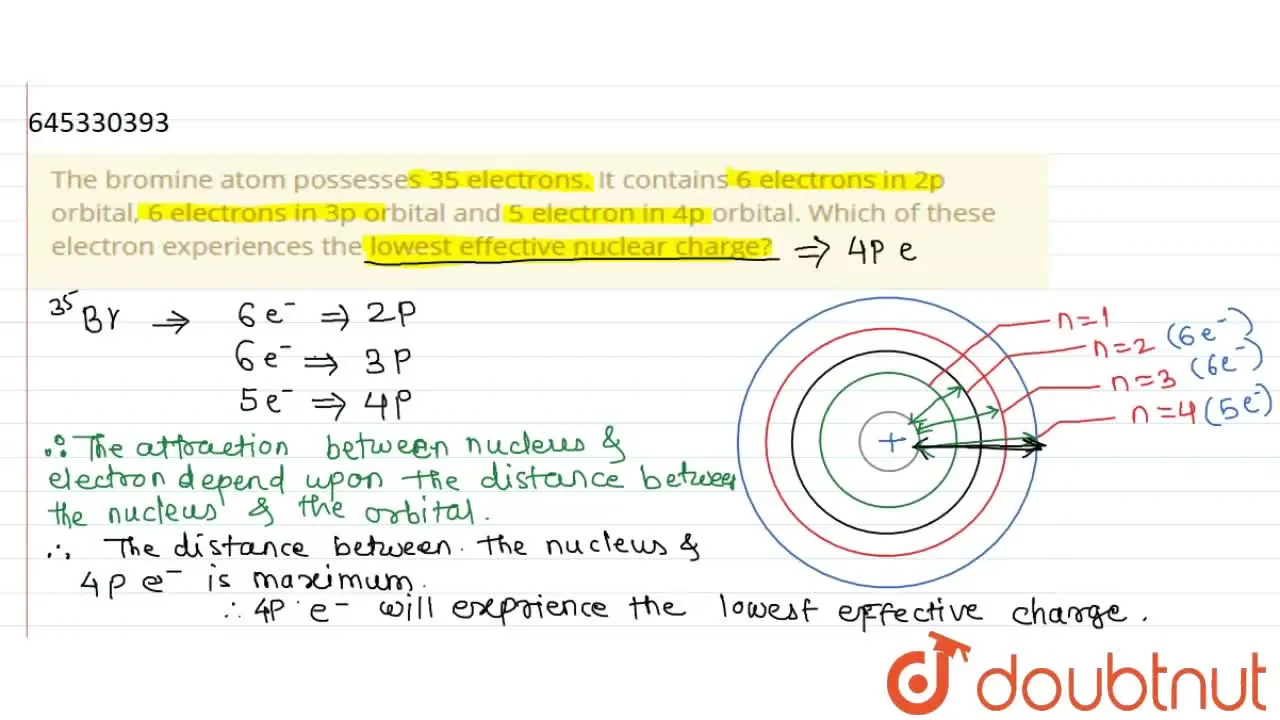 645330393
The bromine atom possesses 35 electrons. It contains 6 electrons in 2p
orbital, 6 electrons in 3p orbital and 5 electron in 4p orbital. Which of these
electron experiences the lowest effective nuclear charge? ⇒ 4P e
35Br → 6e⁻ ⇒ 2P
6e⁻ ⇒ 3P
5e⁻ ⇒ 4P
n=1
n=2 (6e⁻)
n=3 (6e⁻)
n=4 (5e⁻)
+
∵ The attraction between nucleus &
electron depend upon the distance between
the nucleus & the orbital.
∴ The distance between the nucleus &
4p e⁻ is maximum.
∴ 4P e⁻ will exprience the lowest effective charge.
doubtnut